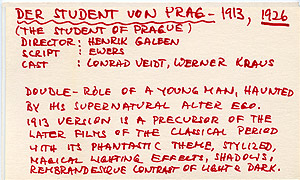 DER STUDENT VON PRAG - 1913, 1926
(THE STUDENT OF PRAGUE)
DIRECTOR : HENRIK GALEEN
SCRIPT : EWERS
CAST : CONRAD VEIDT, WERNER KRAUS
DOUBLE-RÔLE OF A YOUNG MAN, HAUNTED
BY HIS SUPERNATURAL ALTER EGO.
1913 VERSION IS A PRECURSOR OF THE
LATER FILMS OF THE CLASSICAL PERIOD
WITH ITS PHANTASTIC THEME, STYLIZED,
MAGICAL LIGHTING EFFECTS, SHADOWS,
REMBRANDESQUE CONTRAST OF LIGHT & DARK.